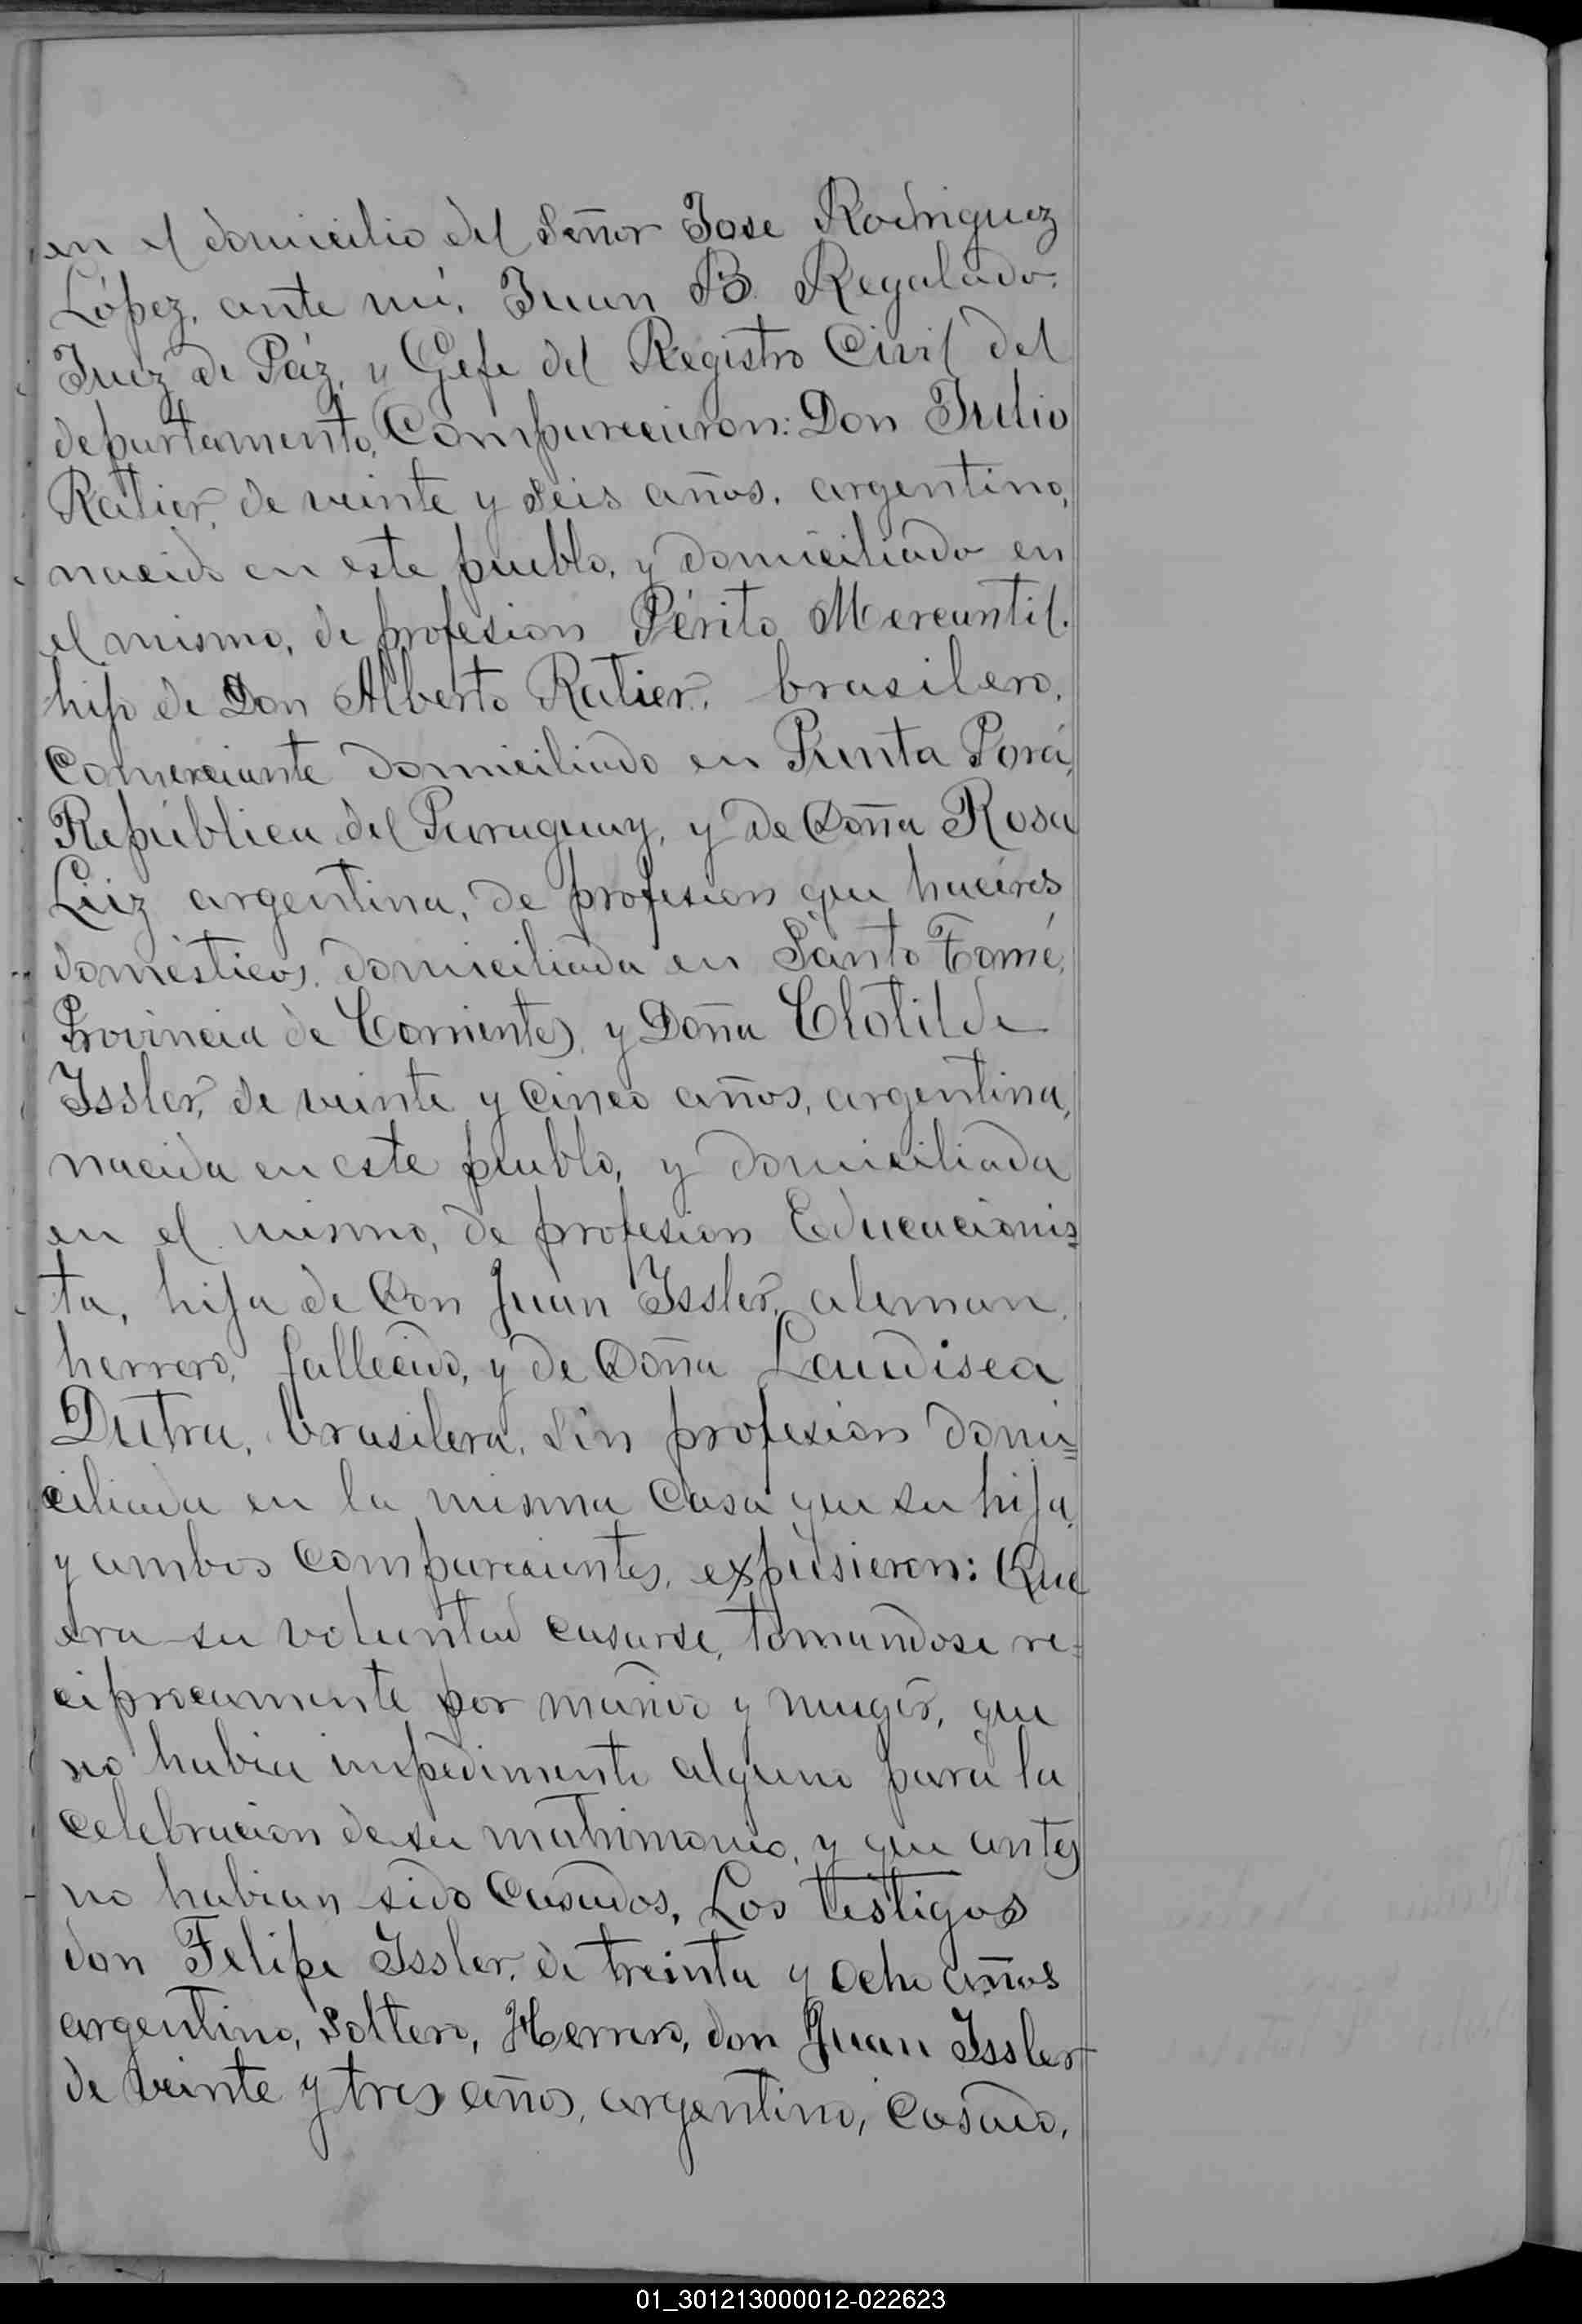 en el domicilio del Señor Jose Rodriguez
López, ante mí, Juan B. Regalado,
Juez de Páz, y Gefe del Registro Civil del
departamento, Comparecieron: Don Julio
Ratier, de veinte y seis años, argentino,
nacido en este pueblo, y domiciliado en
el mismo, de profesion Périto Mercantil.
hijo de Don Alberto Ratier, brasilero,
Comerciante domiciliado en Punta Porá,
República del Paraguay, y de Doña Rosa
argentina, de profesion que haceres
domésticos, domiciliada en Santo Tomé,
Provincia de Corrientes, y Doña Clotilde
Issler, de veinte y cinco años, argentina,
nacida en este pueblo, y domiciliada
en el mismo, de profesion Educacionis=
ta, hija de Don Juan Issler, aleman,
herrero, fallecido, y de Doña
Dutra, brasilera, sin profesion domi=
ciliada en la misma Casa que su hija,
y ambos comparecientes, expusieron: Que
era su voluntad casarse, tomandose re=
ciprocamente por marido y muger, que
no habia impedimento alguno para la
celebracion de su matrimonio, y que antes
no habian sido Casados, Los testigos
don Felipe Issler, de treinta y ocho años
argentino, soltero, Herrero, don Juan Issler
de veinte y tres años, argentino, Casado,
01_301213000012-022623